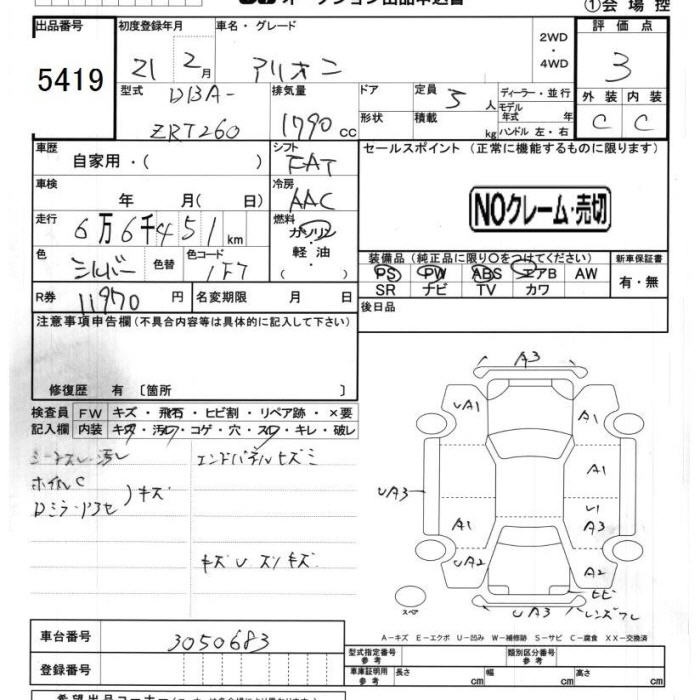 ①会場控
出品番号 初度登録年月 車名・グレード 2WD・4WD 評価点
5419 21 2月 アリオン 3
型式 DBA-ZRT260 排気量 1790cc ドア 定員 5人 ディーラー・並行 外装 内装
形状 積載 kg モデル年式 年 ハンドル 左・右 C C
車歴 自家用・( ) シフト FAT セールスポイント (正常に機能するものに限ります)
車検 年 月( 日) 冷房 AAC
NOクレーム・売切
走行 6万6千451km 燃料 ガソリン・軽油・( )
色 シルバー 色替 色コード 1F7 装備品(純正品に限り○をつけてください) 新車保証書
PS PW ABS エアB AW 有・無
SR ナビ TV カワ
R券 11970円 名変期限 月 日 後日品
注意事項申告欄(不具合内容等は具体的に記入して下さい)
修復歴 有 〔箇所 〕
検査員 FW キズ・飛石・ヒビ割・リペア跡・×要
記入欄 内装 キズ・汚レ・コゲ・穴・スレ・キレ・破レ
エンドパネルヒズミ
ホイルC
Dミラー・ドアセ )キズ
キズUスリキズ
A3
UA1 A1
A1
UA3 U1
A1 A3
UA2 A2
ヒビ
UA3 レンズワレ
スペア
A-キズ E-エクボ U-凹み W-補修跡 S-サビ C-腐食 XX-交換済
車台番号 3050683
型式指定番号 参考 類別区分番号 参考
登録番号 車庫証明用 参考 長さ cm 幅 cm 高さ cm